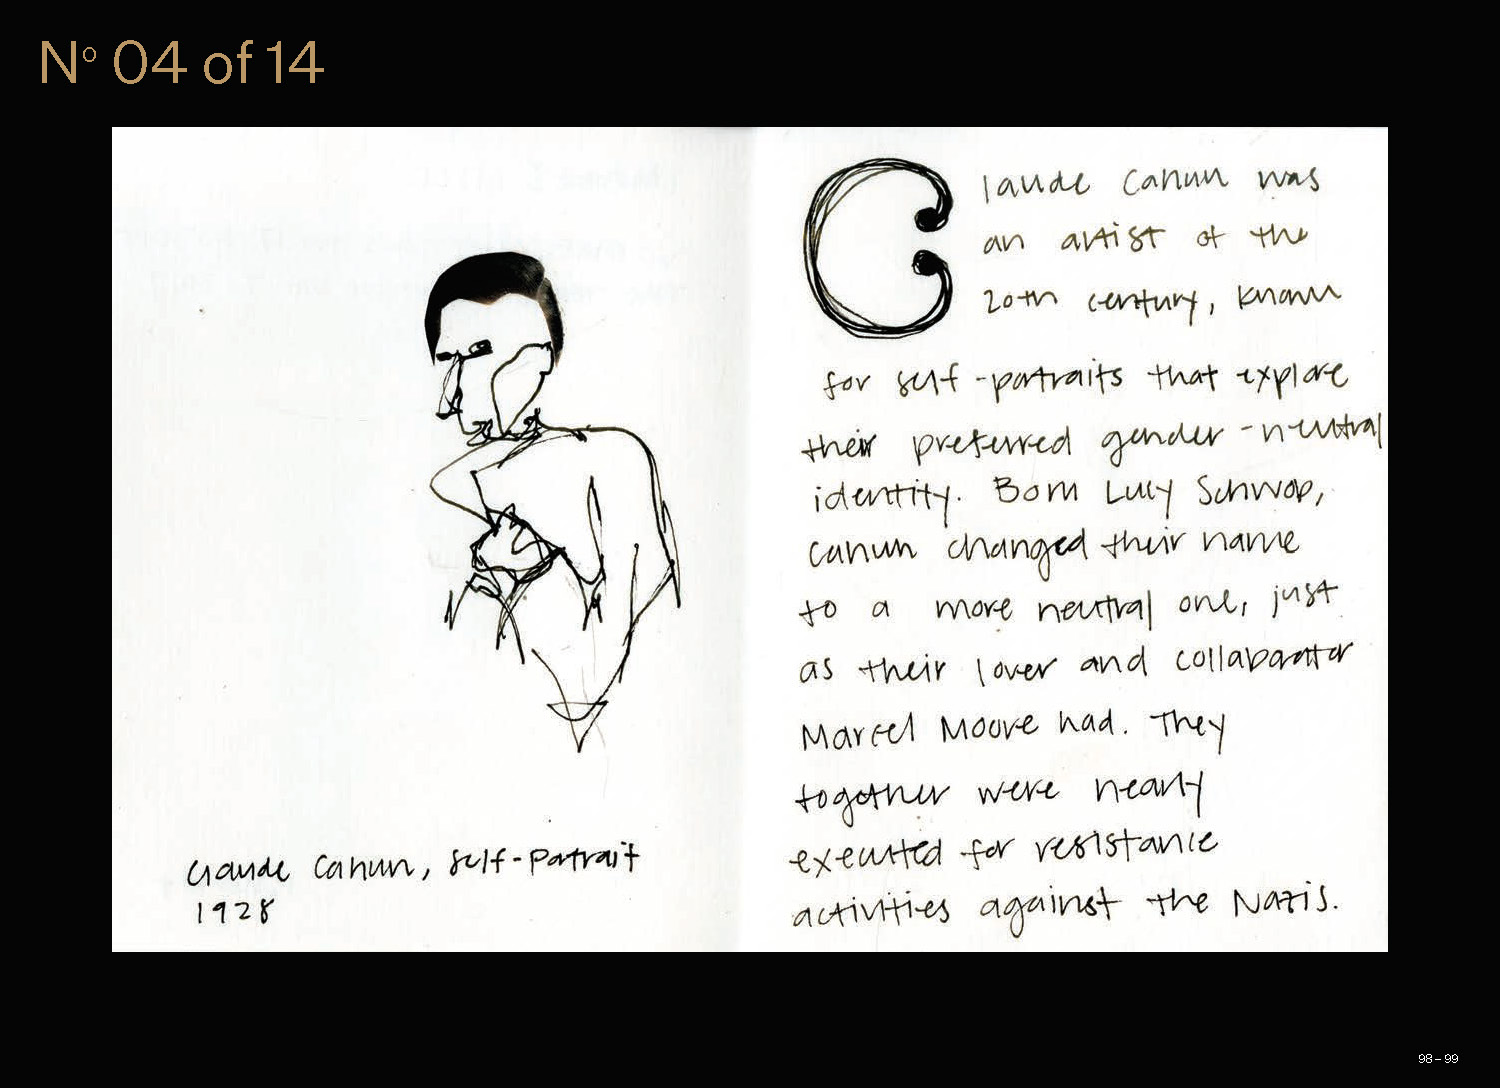 Nº 04 of 14
Claude Cahun was
an artist of the
20th century, known
for self-portraits that explore
their preferred gender-neutral
identity. Born Lucy Schwob,
Cahun changed their name
to a more neutral one, just
as their lover and collaborator
Marcel Moore had. They
together were nearly
executed for resistance
activities against the Nazis.
Claude Cahun, self-portrait
1928
98–99